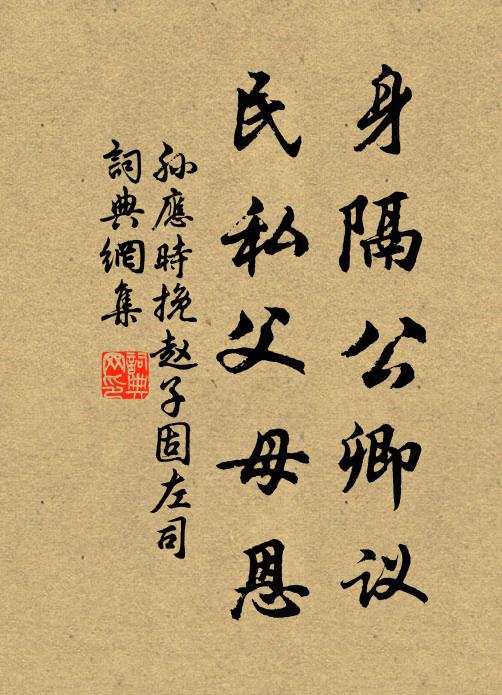 身隔公卿议
民私父母恩
孙應時挽赵子固左司
詞典網集
詞典网印